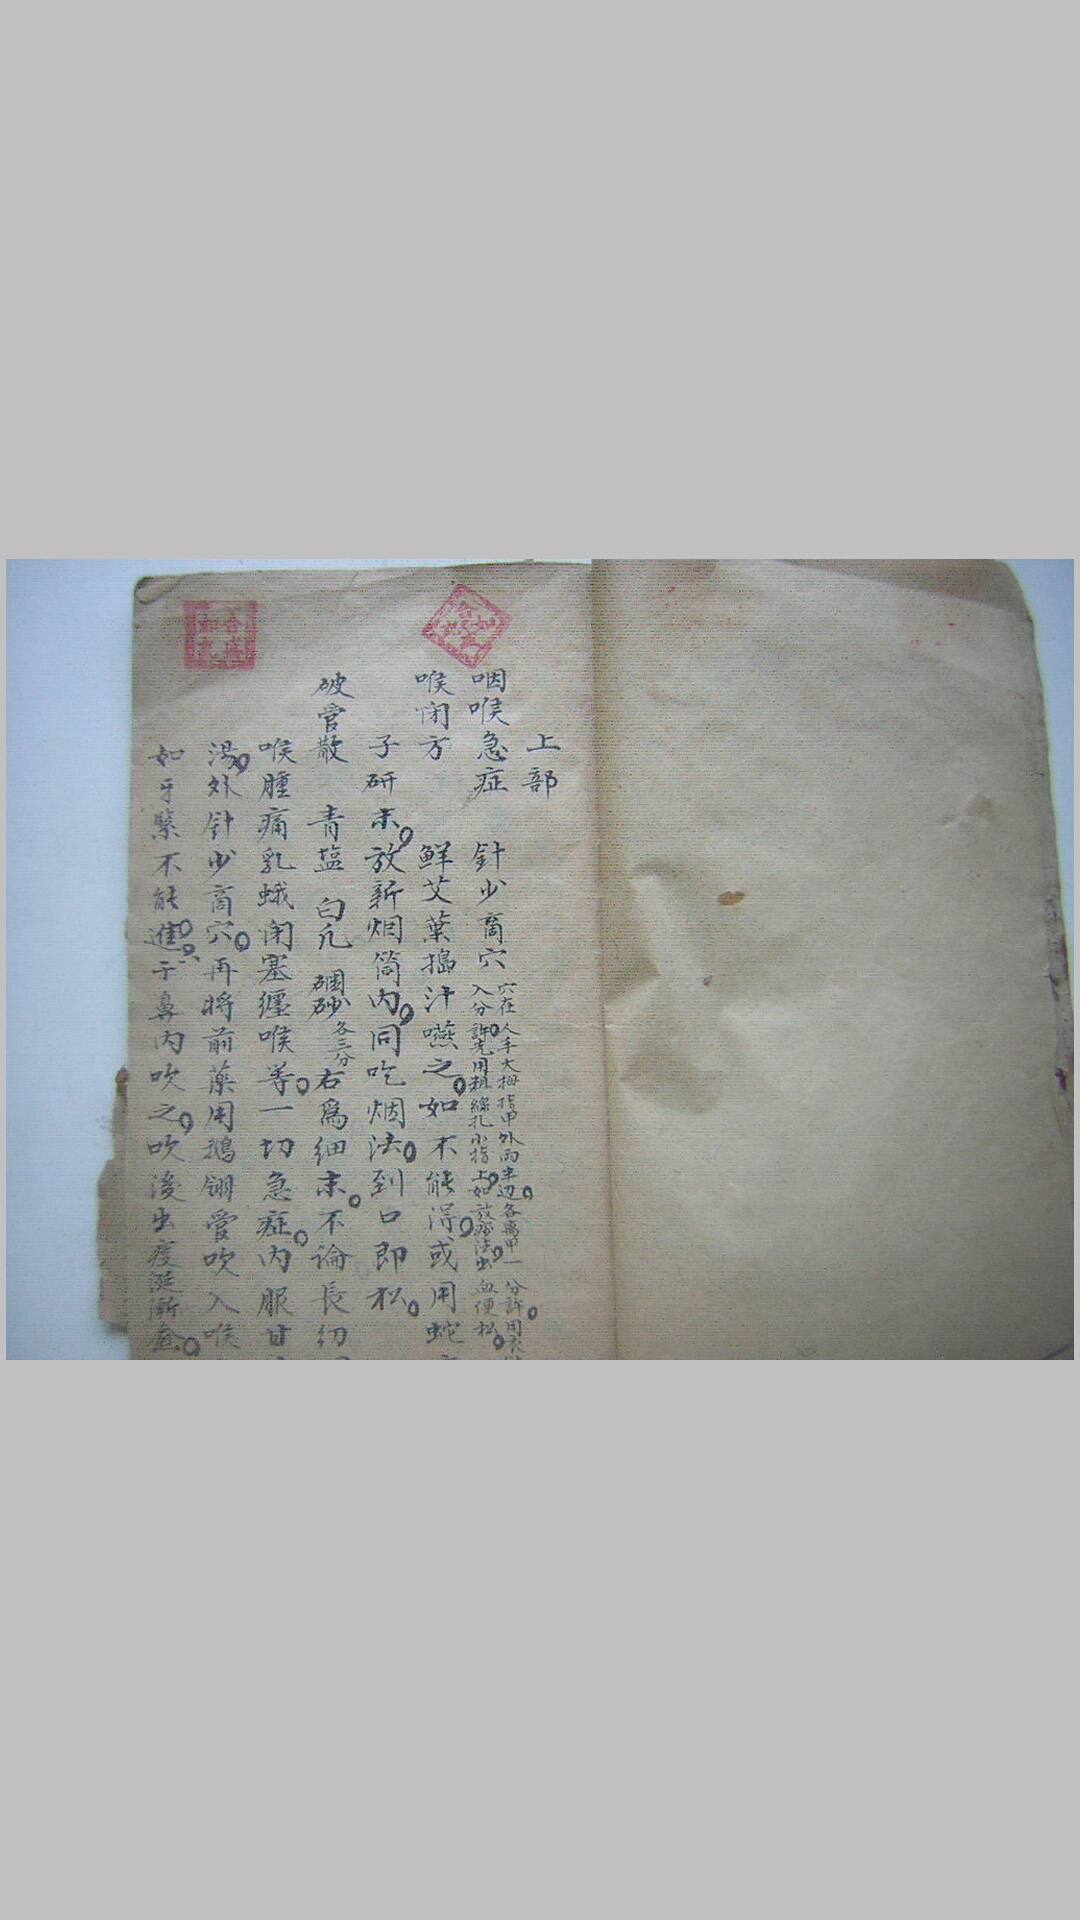 上部
咽喉急症 針少商穴 穴在人手大拇指甲外兩半边各离甲一分許用
入分許先用粗線扎小指上如放痧法出血便松
喉闭方 鮮艾葉搗汁嚥之如不能得或用蛇
子研末放新烟筒内同吃烟法到口即松
破管散 青盐 白凡 硇砂各三分右為細末不論長幼
喉腫痛乳蛾闭塞纏喉等一切急症内服甘
湯外針少商穴再将前藥用鵝翎管吹入喉
如牙緊不能進于鼻内吹之吹後出痰涎漸愈